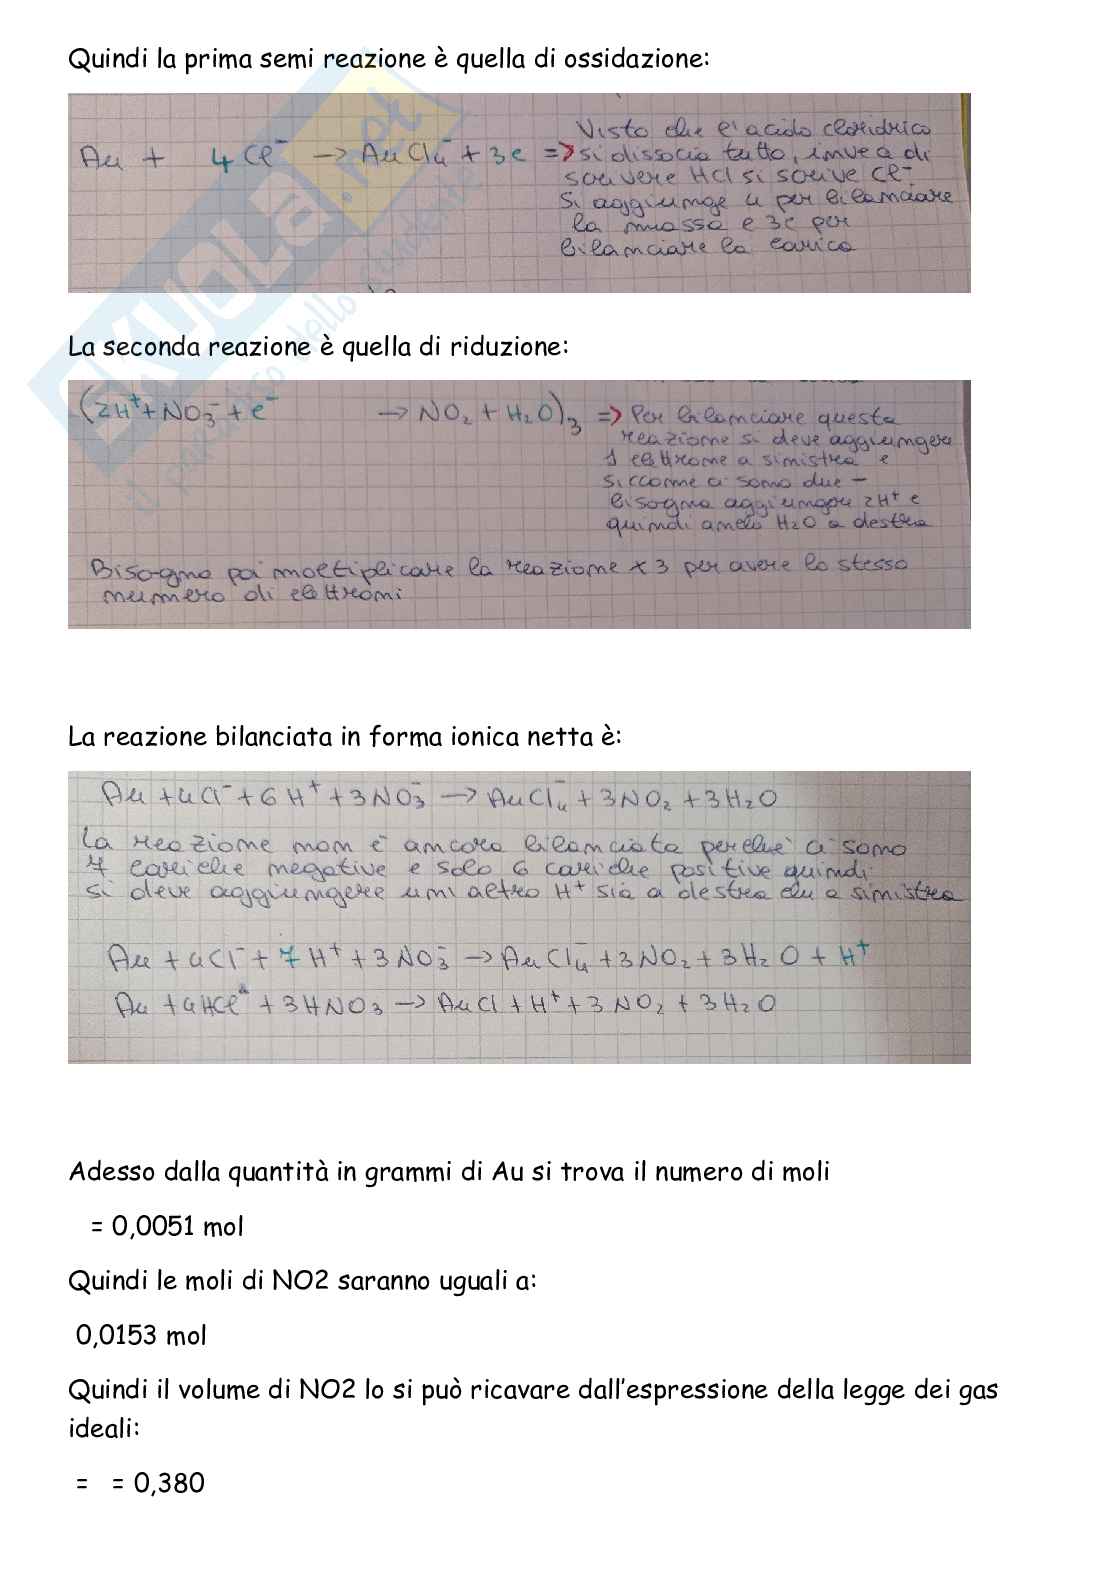 Quindi la prima semi reazione è quella di ossidazione:
Au + 4Cl⁻ → AuCl₄⁻ + 3e => Visto che l'acido cloridrico
si dissocia tutto, invece di
scrivere HCl si scrive Cl⁻.
Si aggiunge 4 per bilanciare
la massa e 3e per
bilanciare la carica
La seconda reazione è quella di riduzione:
(2H⁺ + NO₃⁻ + e⁻ → NO₂ + H₂O)₃ => Per bilanciare questa
reazione si deve aggiungere
1 elettrone a sinistra e
siccome ci sono due –
bisogna aggiungere 2H⁺ e
quindi anche H₂O a destra
Bisogna poi moltiplicare la reazione x 3 per avere lo stesso
numero di elettroni
La reazione bilanciata in forma ionica netta è:
Au + 4Cl⁻ + 6H⁺ + 3NO₃⁻ → AuCl₄⁻ + 3NO₂ + 3H₂O
La reazione non è ancora bilanciata perché ci sono
7 cariche negative e solo 6 cariche positive quindi
si deve aggiungere un altro H⁺ sia a destra che a sinistra
Au + 4Cl⁻ + 7H⁺ + 3NO₃⁻ → AuCl₄⁻ + 3NO₂ + 3H₂O + H⁺
Au + 4HCl + 3HNO₃ → AuCl + H⁺ + 3NO₂ + 3H₂O
Adesso dalla quantità in grammi di Au si trova il numero di moli
= 0,0051 mol
Quindi le moli di NO2 saranno uguali a:
0,0153 mol
Quindi il volume di NO2 lo si può ricavare dall'espressione della legge dei gas
ideali:
= = 0,380
SKUOLA.net
il paradiso dello studente